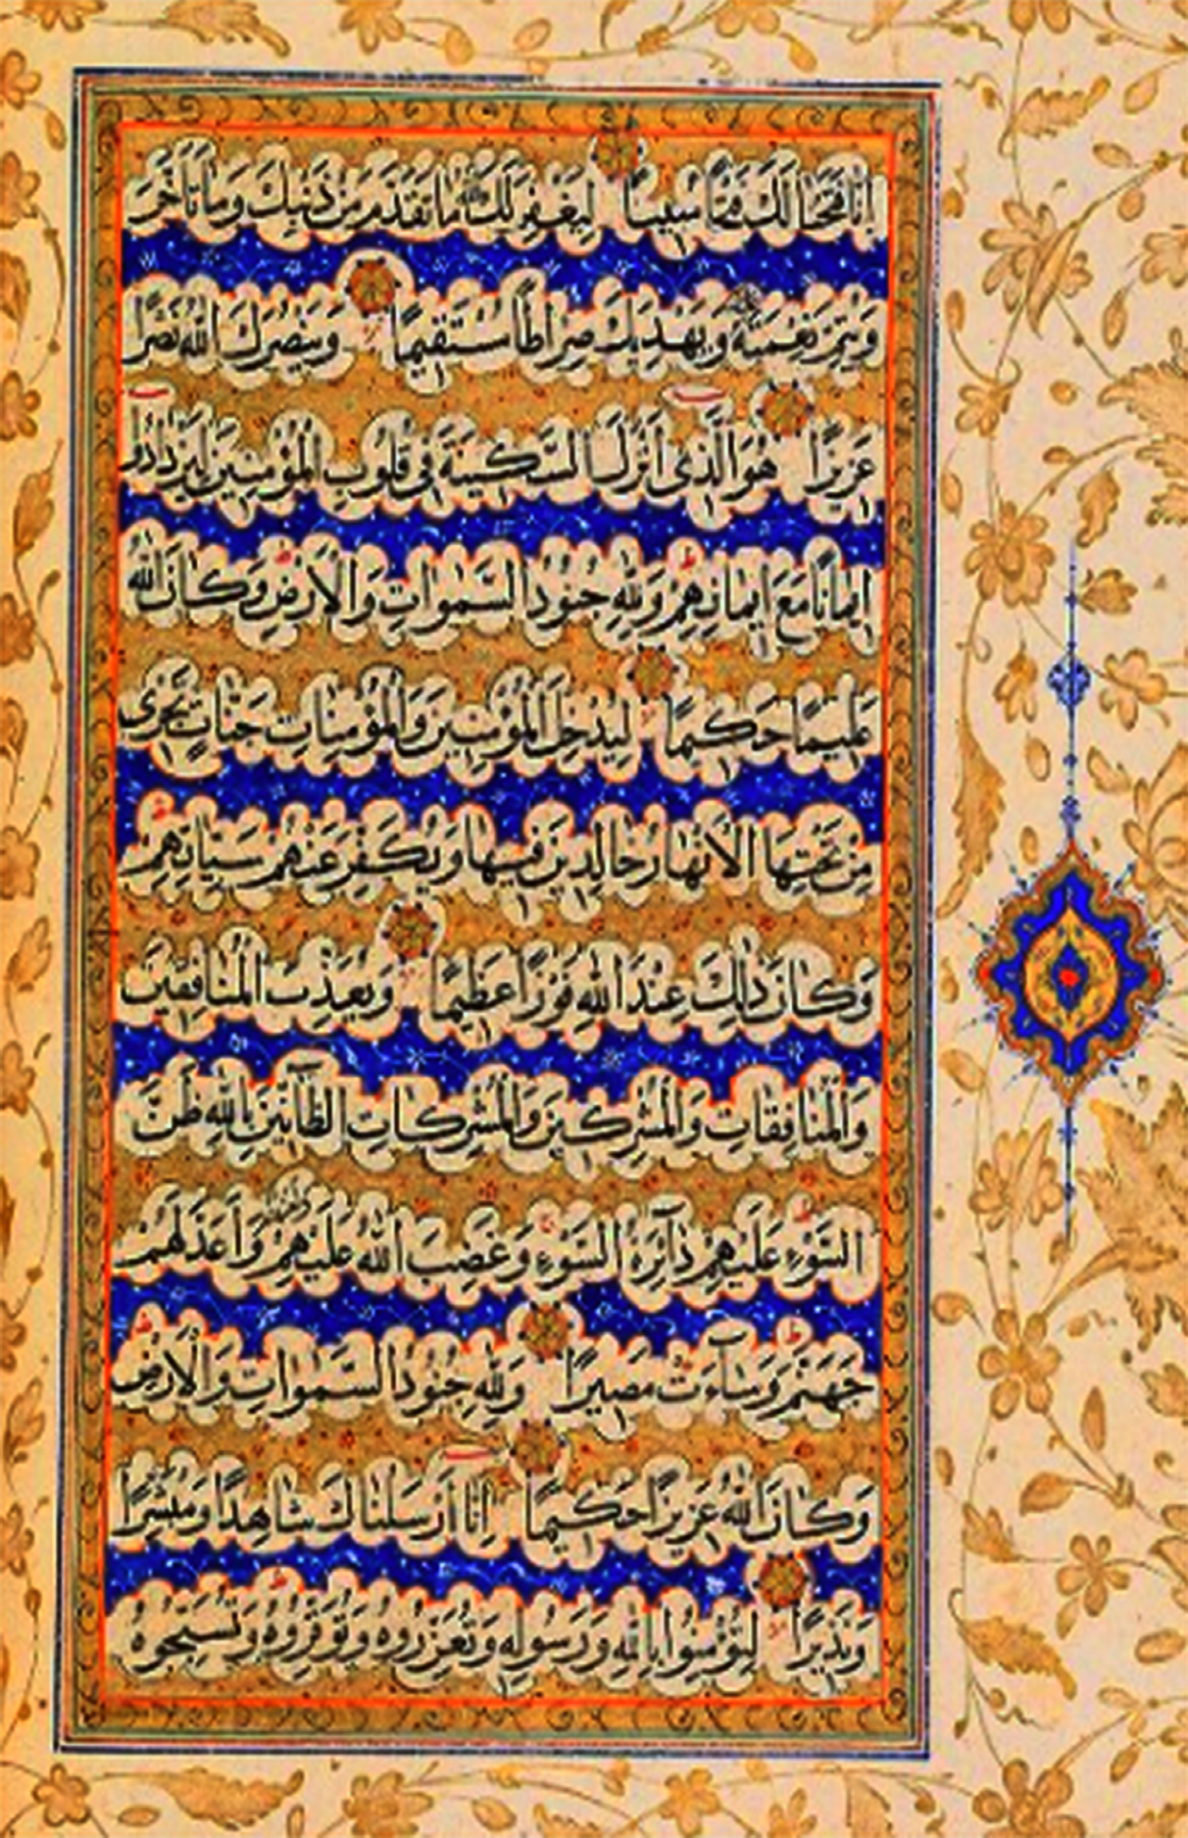 إِنَّا فَتَحْنَا لَكَ فَتْحًا مُبِينًا لِيَغْفِرَ لَكَ اللّٰهُ مَا تَقَدَّمَ مِنْ ذَنْبِكَ وَمَا تَأَخَّرَ
وَيُتِمَّ نِعْمَتَهُ عَلَيْكَ وَيَهْدِيَكَ صِرَاطًا مُسْتَقِيمًا وَيَنْصُرَكَ اللّٰهُ نَصْرًا
عَزِيزًا هُوَ الَّذِي أَنْزَلَ السَّكِينَةَ فِي قُلُوبِ الْمُؤْمِنِينَ لِيَزْدَادُوا
إِيمَانًا مَعَ إِيمَانِهِمْ وَلِلّٰهِ جُنُودُ السَّمٰوَاتِ وَالْأَرْضِ وَكَانَ اللّٰهُ
عَلِيمًا حَكِيمًا لِيُدْخِلَ الْمُؤْمِنِينَ وَالْمُؤْمِنَاتِ جَنَّاتٍ تَجْرِي
مِنْ تَحْتِهَا الْأَنْهَارُ خَالِدِينَ فِيهَا وَيُكَفِّرَ عَنْهُمْ سَيِّئَاتِهِمْ
وَكَانَ ذٰلِكَ عِنْدَ اللّٰهِ فَوْزًا عَظِيمًا وَيُعَذِّبَ الْمُنَافِقِينَ
وَالْمُنَافِقَاتِ وَالْمُشْرِكِينَ وَالْمُشْرِكَاتِ الظَّآنِّينَ بِاللّٰهِ ظَنَّ
السَّوْءِ عَلَيْهِمْ دَآئِرَةُ السَّوْءِ وَغَضِبَ اللّٰهُ عَلَيْهِمْ وَلَعَنَهُمْ وَأَعَدَّ لَهُمْ
جَهَنَّمَ وَسَآءَتْ مَصِيرًا وَلِلّٰهِ جُنُودُ السَّمٰوَاتِ وَالْأَرْضِ
وَكَانَ اللّٰهُ عَزِيزًا حَكِيمًا إِنَّا أَرْسَلْنَاكَ شَاهِدًا وَمُبَشِّرًا
وَنَذِيرًا لِتُؤْمِنُوا بِاللّٰهِ وَرَسُولِهِ وَتُعَزِّرُوهُ وَتُوَقِّرُوهُ وَتُسَبِّحُوهُ